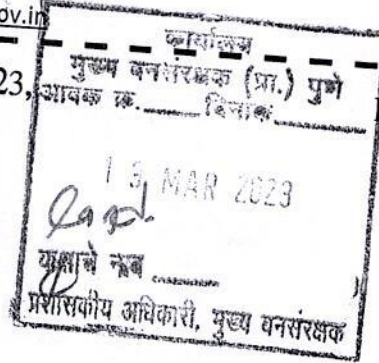 ov.in
कार्यालय
मुख्य वनसंरक्षक (प्रा.) पुणे
23,
आवक क्र. ______ दिनांक ______
13 MAR 2023
नाव ______
प्रशासकीय अधिकारी, मुख्य वनसंरक्षक